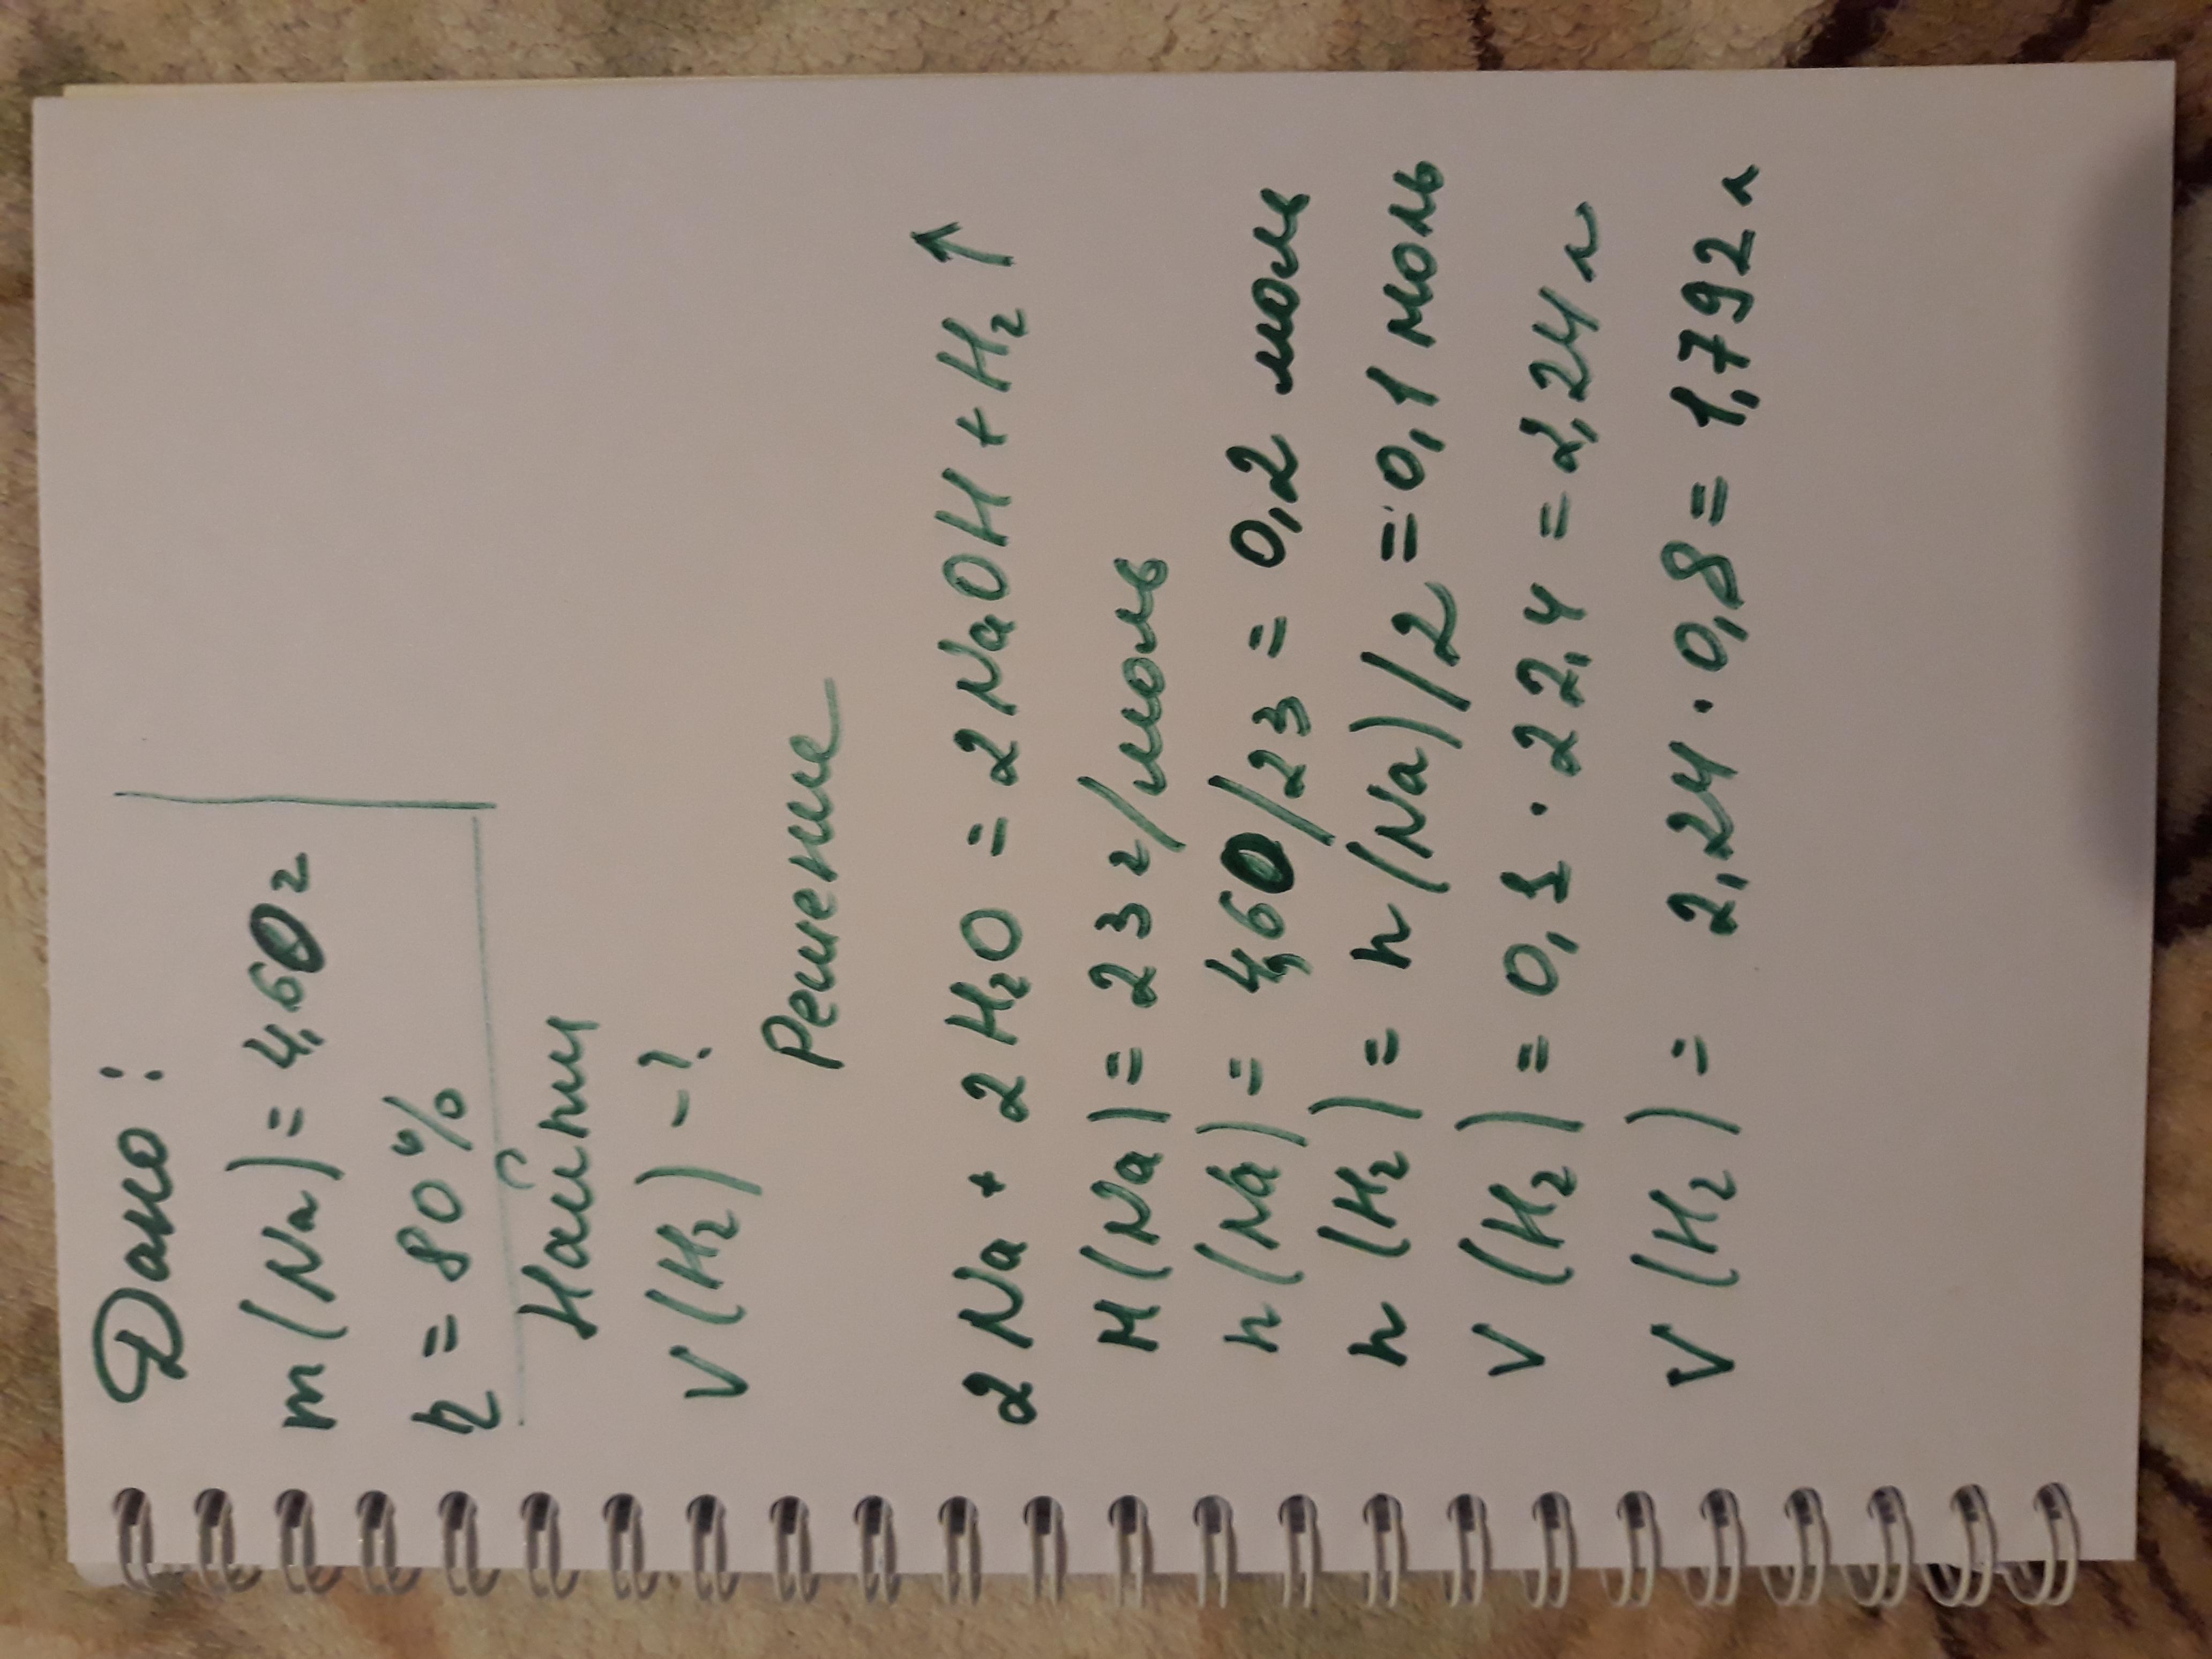 Дано:
m(Na) = 4,60 г
η = 80%
Найти
V(H₂) - ?
Решение
2Na + 2H₂O = 2NaOH + H₂ ↑
M(Na) = 23 г/моль
n(Na) = 4,60/23 = 0,2 моль
n(H₂) = n(Na)/2 = 0,1 моль
V(H₂) = 0,1 · 22,4 = 2,24 л
V(H₂) = 2,24 · 0,8 = 1,792 л